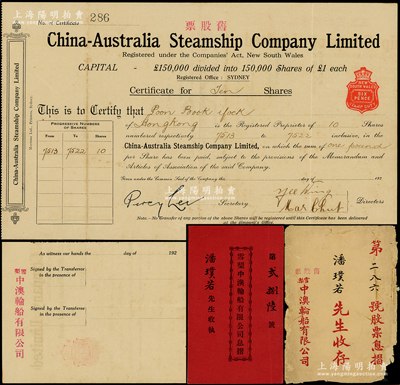 舊股票
No. of Certificate 286
China-Australia Steamship Company Limited
Registered under the Companies' Act, New South Wales
CAPITAL - £150,000 divided into 150,000 Shares of £1 each
Registered Office : SYDNEY
Certificate for Ten Shares
This is to Certify that Poon Book Yock
of Hong Kong is the Registered Proprietor of 10 Shares
numbered respectively 7513 to 7522 inclusive, in the
China-Australia Steamship Company, Limited, on which the sum of one pound
per Share has been paid, subject to the provisions of the Memorandum and
Articles of Association of the said Company.
Given under the Common Seal of the Company
Secretary
Directors
Note—No Transfer of any portion of the above Shares will be registered until this Certificate has been delivered
PROGRESSIVE NUMBERS
OF SHARES
From To Shares
7513 7522 10
China-Australia Steamship Company Limited
NEW SOUTH WALES
STAMP DUTY
As witness our hands the day of 192
Signed by the Transferor
in the presence of
Signed by the Transferee
in the presence of
中澳輪船有限公司
第 貳捌陸 號
雪梨中澳輪船有限公司息摺
潘璞若先生收執
第二八六號股票息摺
潘璞若先生收存
舊股票
中澳輪船有限公司